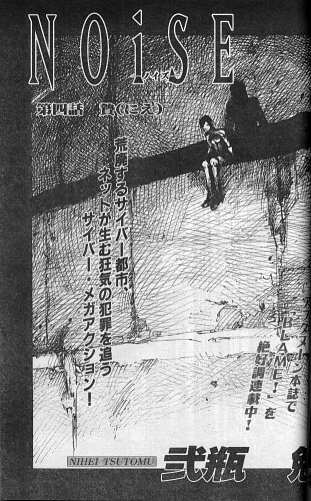 NOiSE
ノイズ
第四話 贄(にえ)
荒廃するサイバー都市。
ネットが生む狂気の犯罪を追う
サイバー メガアクション!
本誌で
「BLAME!」を
絶好調連載中!
NIHEI TSUTOMU
弐瓶 勉